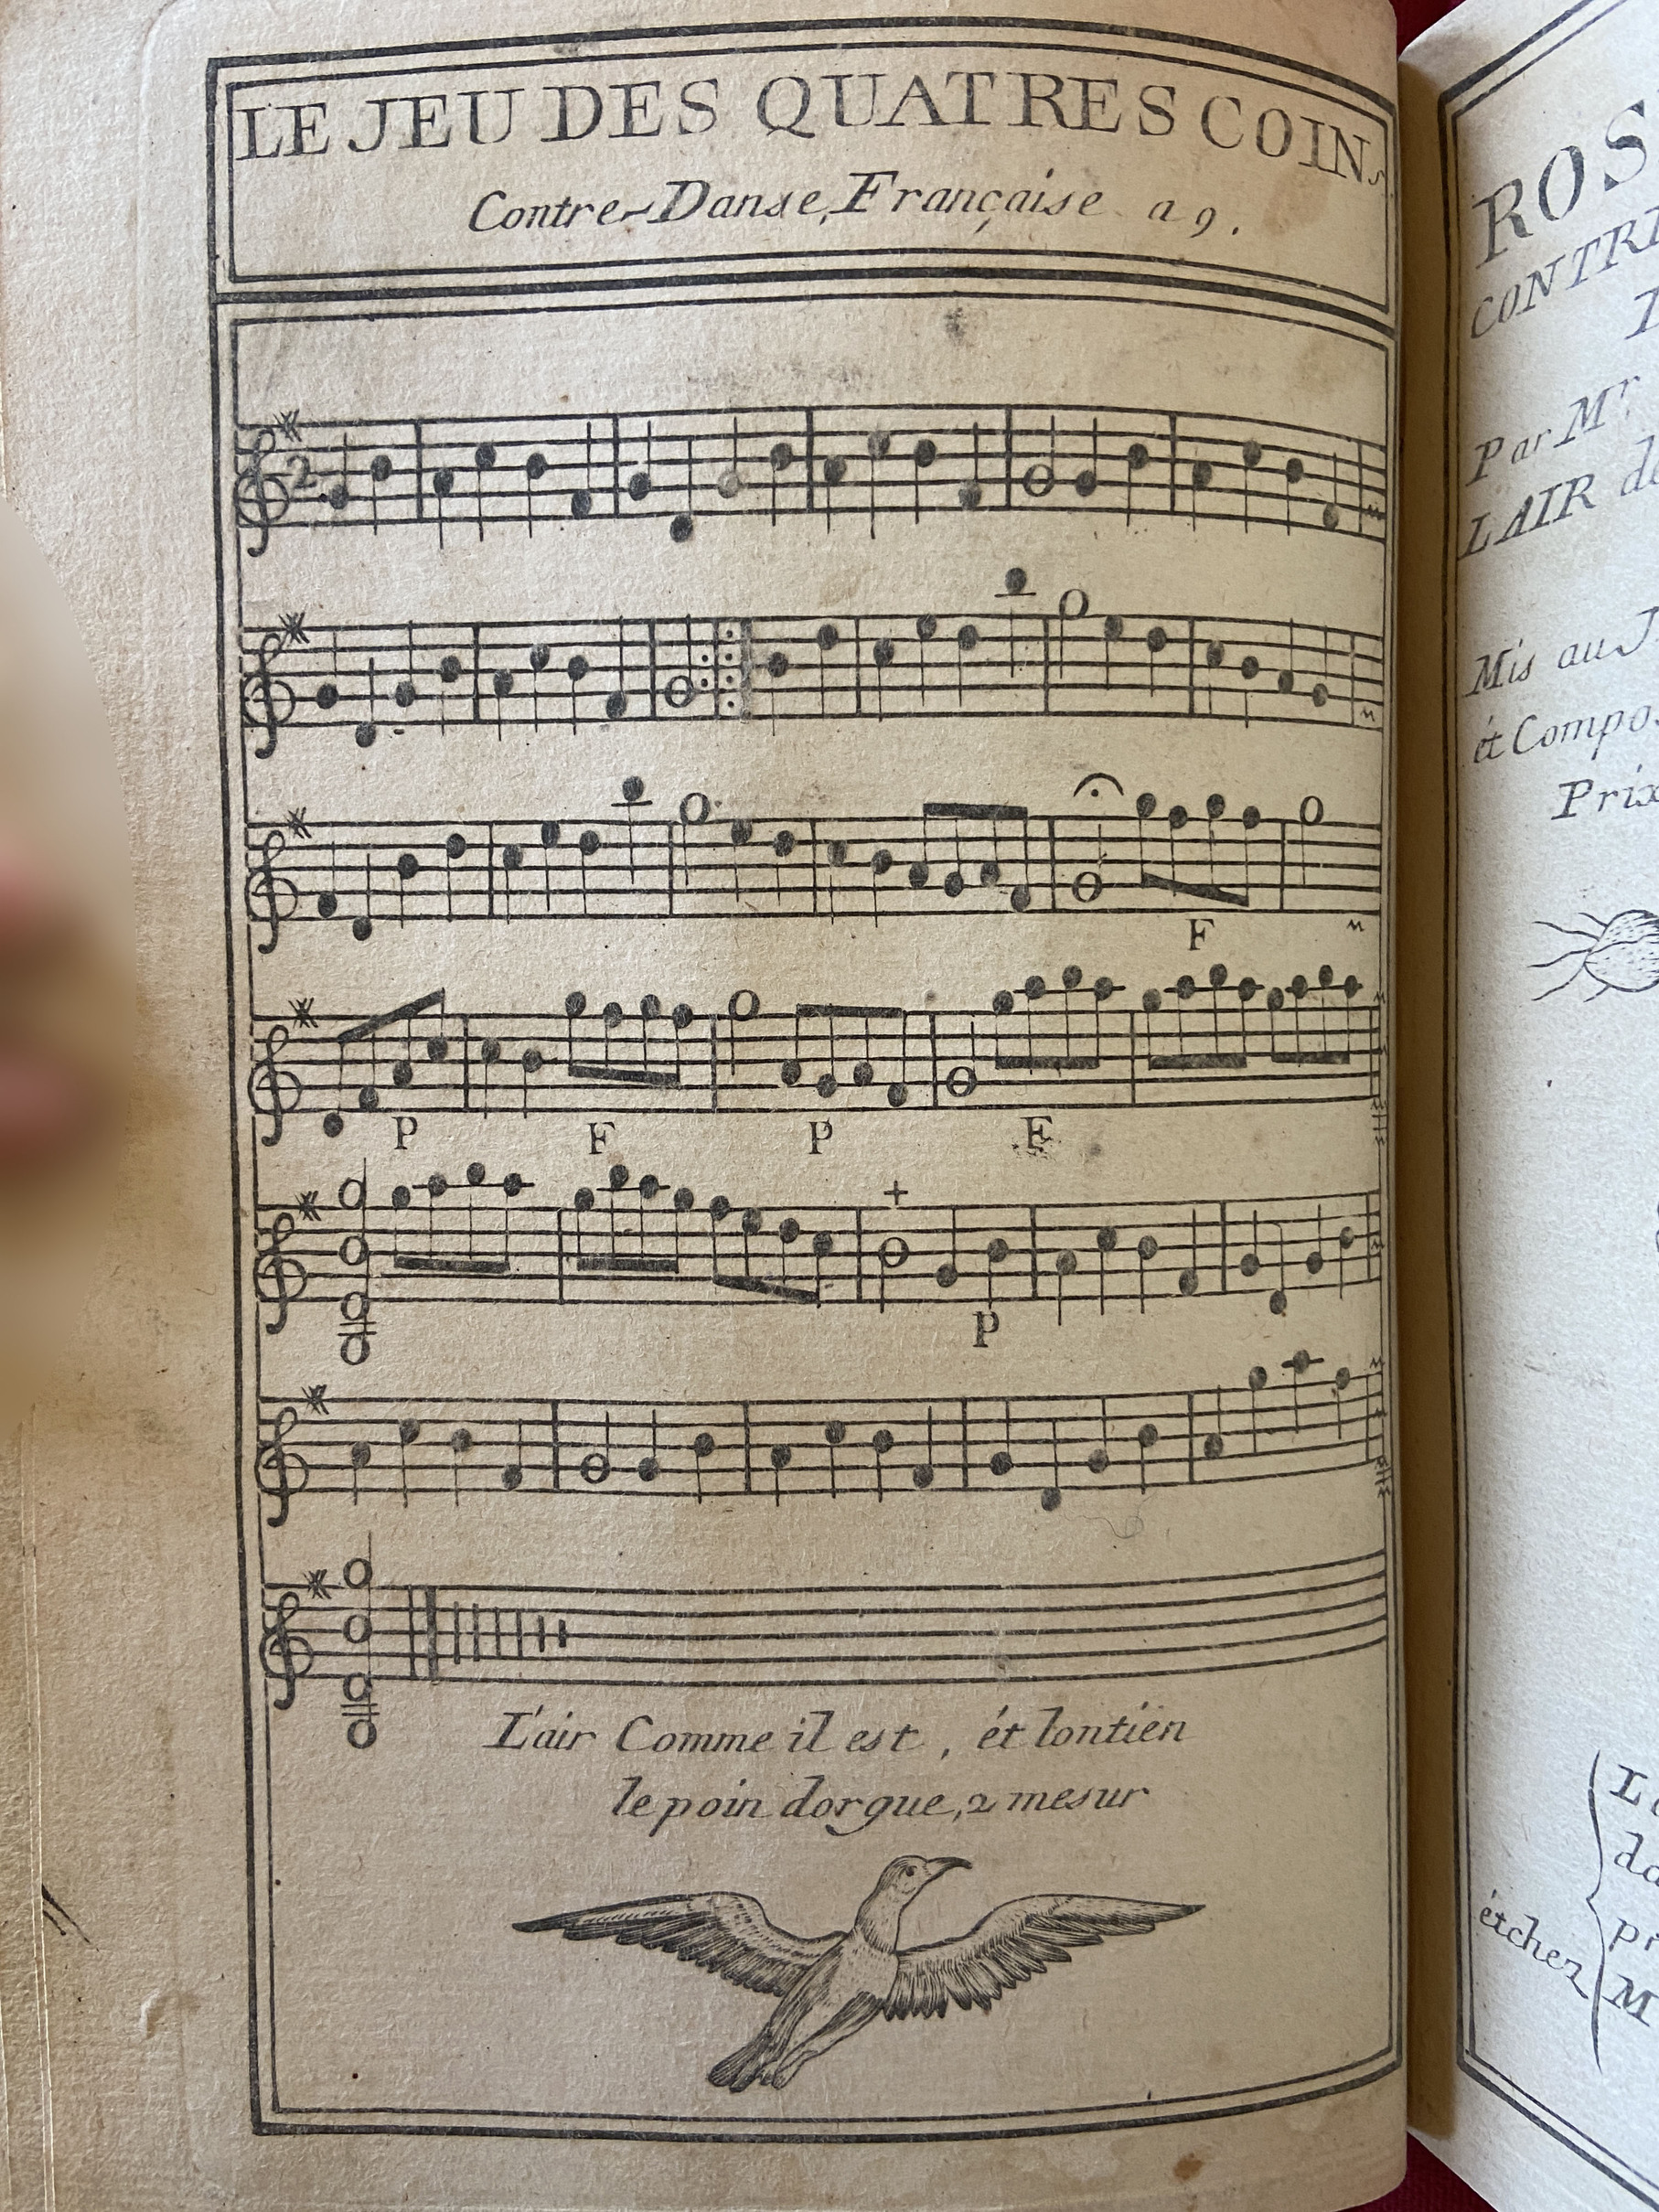 LE JEU DES QUATRES COINS
Contre-Danse, Française a 9.
2
F
P F P F
P
L'air Comme il est, ét lontién
le poin dorgue, 2 mesur
ROS
CONTRE
Par Mr
LAIR de
Mis au J
ét Compos
Prix
étchez